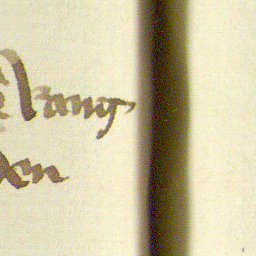 lang
den